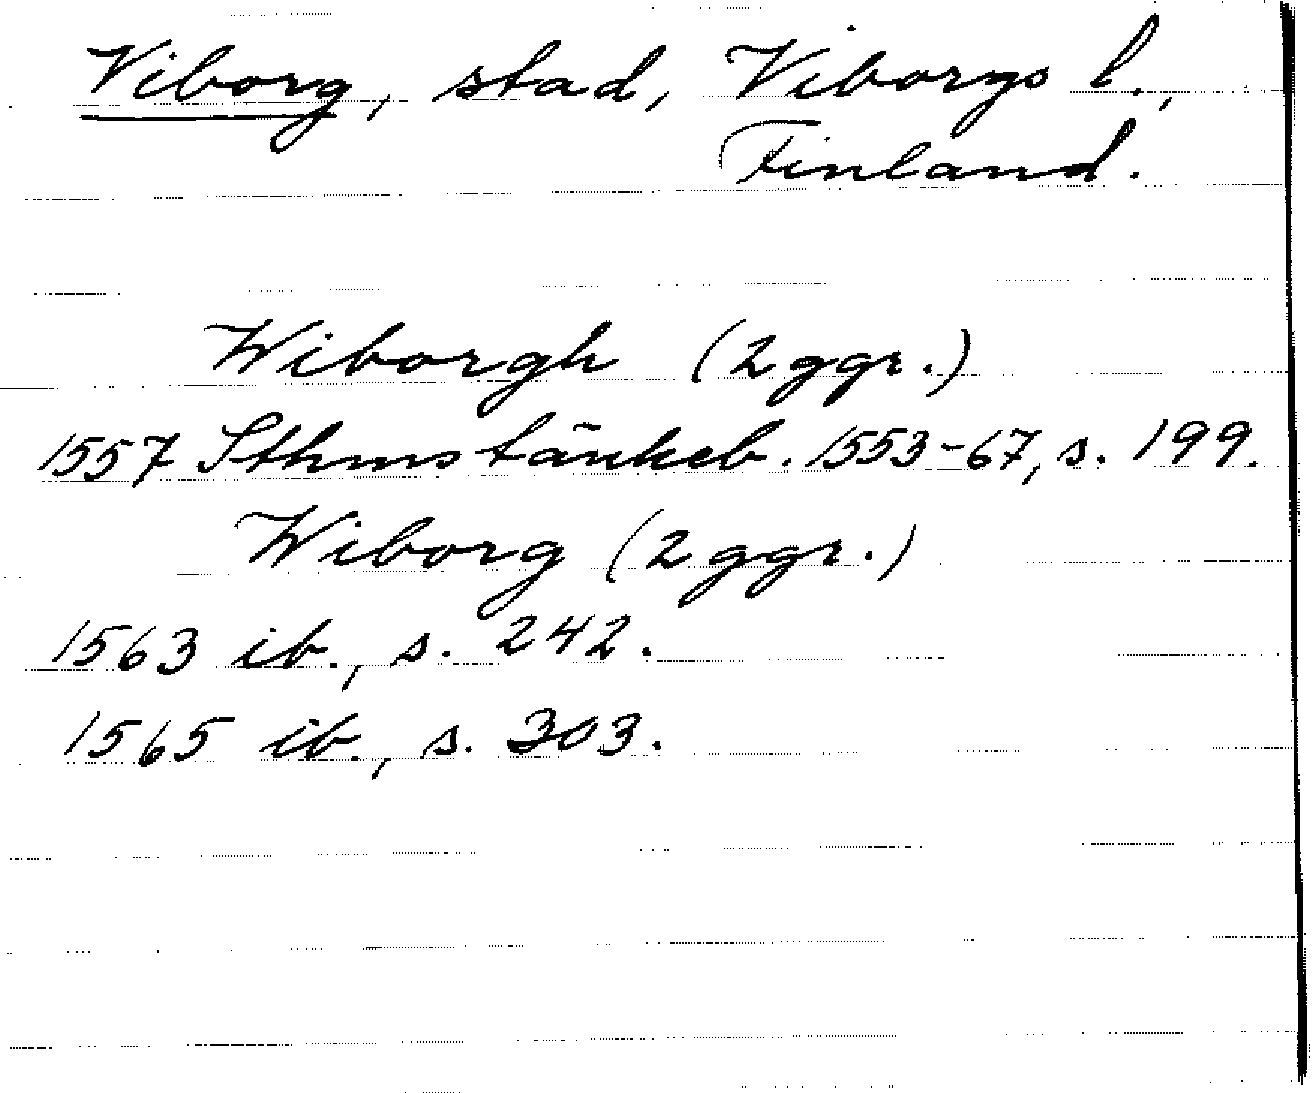 Viborg, stad, Viborgs l.,
Finland.
Wiborgh (2 ggr.)
1557 Sthms tänkeb. 1553-67, s. 199.
Wiborg (2 ggr.)
1563 ib., s. 242.
1565 ib., s. 303.